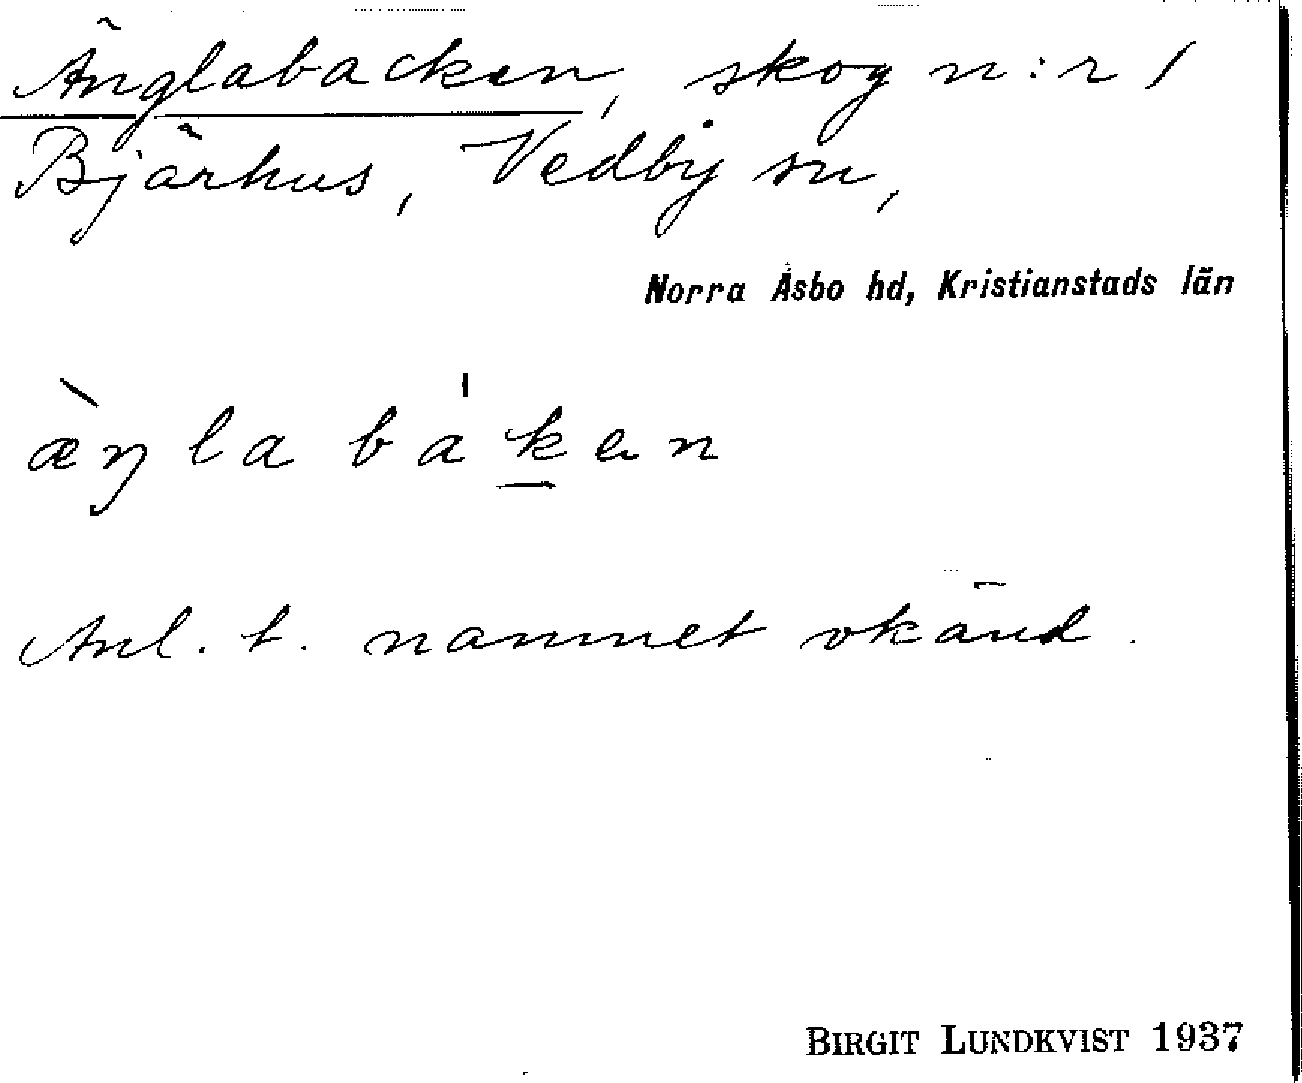 Änglabacken, skog n:r 1
Bjärhus, Vedby sn,
Norra Åsbo hd, Kristianstads län
æ̀ŋla bá<u>k</u>en
Anl. t. namnet okänd.
BIRGIT LUNDKVIST 1937